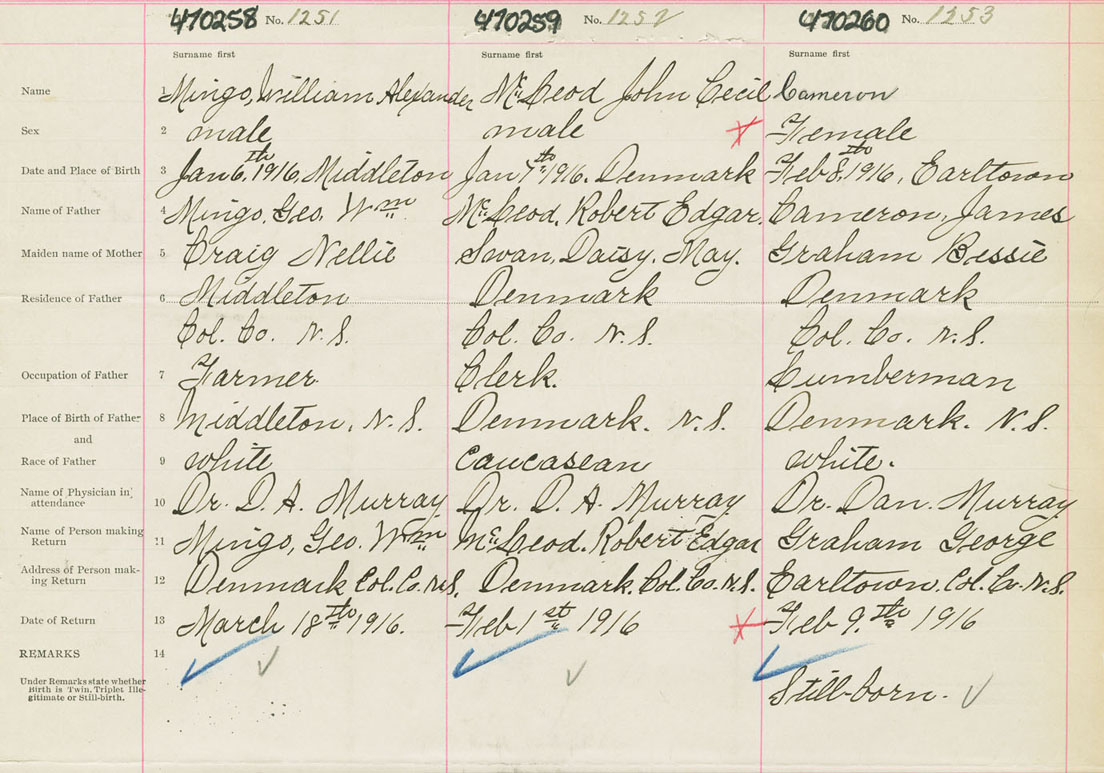 470258 No. 1251 470259 No. 1252 470260 No. 1253
Surname first Surname first Surname first
Name 1 Mingo, William Alexander McLeod John Cecil Cameron
Sex 2 male male Female
Date and Place of Birth 3 Jan 6th, 1916, Middleton Jan 7th 1916. Denmark Feb 8th, 1916, Earltown
Name of Father 4 Mingo, Geo. Wm McLeod, Robert Edgar. Cameron, James
Maiden name of Mother 5 Craig Nellie Swan, Daisy. May. Graham Bessie
Residence of Father 6 Middleton Denmark Denmark
Col. Co. N.S. Col. Co. N.S. Col. Co. N.S.
Occupation of Father 7 Farmer Clerk. Lumberman
Place of Birth of Father 8 Middleton, N.S. Denmark. N.S. Denmark. N.S.
and
Race of Father 9 white caucasean white.
Name of Physician in attendance 10 Dr. D. A. Murray Dr. D. A. Murray Dr. Dan. Murray
Name of Person making Return 11 Mingo, Geo. Wm McLeod. Robert Edgar Graham George
Address of Person mak-ing Return 12 Denmark Col. Co. N.S. Denmark. Col. Co. N.S. Earltown. Col. Co. N.S.
Date of Return 13 March 18th 1916. Feb 1st 1916 Feb 9th 1916
REMARKS 14
Under Remarks state whether
Birth is Twin, Triplet Ille-
gitimate or Still-birth. Still-born.